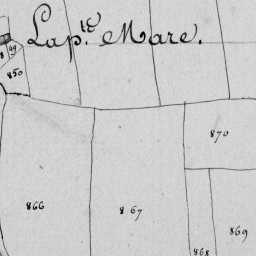 La p.te Mare.
49
8
850
870
866
867
869
868